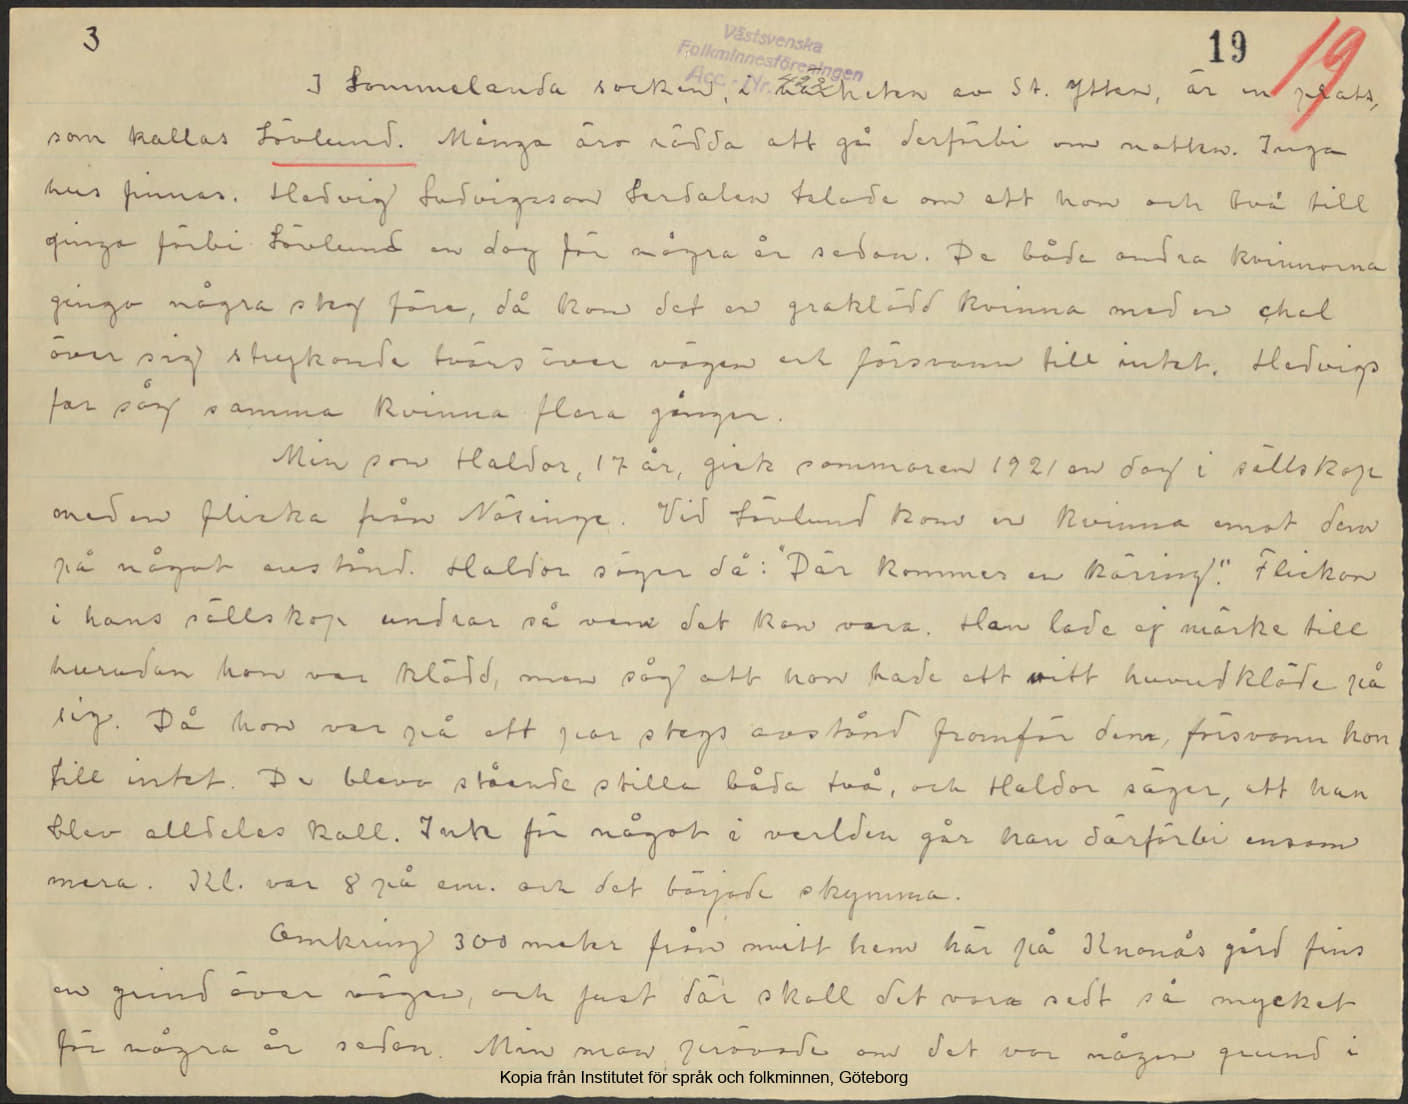 3
19
19
Västsvenska
Folkminnesföreningen
Acc.-Nr.
I Lommelanda socken, i närheten av St. Ytten, är en plats,
som kallas Lövlund. Många äro rädda att gå derförbi om natten. Inga
hus finnas. Hedvig Ludvigsson Lerdalen talade om att hon och två till
ginga förbi Lövlund en dag för några år sedan. De båda andra kvinnorna
gingo några steg före, då kom det en gråklädd kvinna med en schal
över sig strykande tvärs över vägen och försvann till intet. Hedvigs
far såg samma kvinna flera gånger.
Min son Haldor, 17 år, gick sommaren 1921 en dag i sällskap
med en flicka från Näsinge. Vid Lövlund kom en kvinna emot dem
på något avstånd. Haldor säger då: "Där kommer en käring". Flickan
i hans sällskap undrar så vem det kan vara. Han lade ej märke till
hurudan hon var klädd, men såg att hon hade ett vitt huvudkläde på
sig. Då hon var på ett par stegs avstånd framför dem, försvann hon
till intet. De blevo stående stilla båda två, och Haldor säger, att han
blev alldeles kall. Inte för något i verlden går han därförbi ensam
mera. Kl. var 8 på em. och det började skymma.
Omkring 300 meter från mitt hem här på Knonås gård fins
en grind över vägen, och just där skall det vara sedt så mycket
för några år sedan. Min man prövade om det var någon grund i
Kopia från Institutet för språk och folkminnen, Göteborg